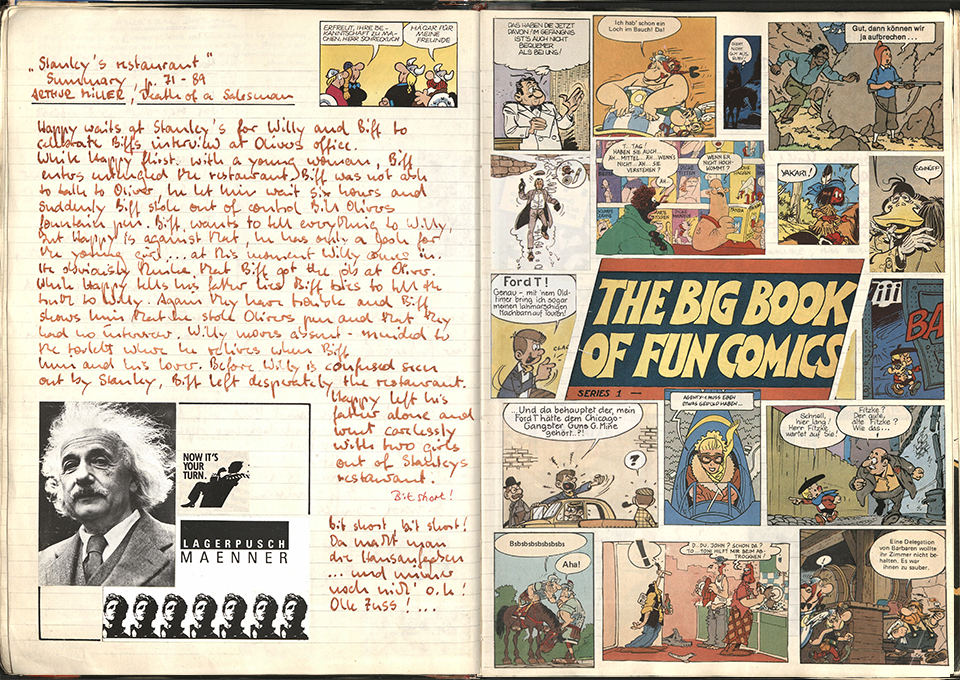 "Stanley's restaurant"
Summary p. 71 - 89
ARTHUR MILLER, 'Death of a Salesman
ERFREUT, IHRE BE-
KANNTSCHAFT ZU MA-
CHEN, HERR SCHRECKLICH
HÄGAR FÜR
MEINE
FREUNDE
Happy waits at Stanley's for Willy and Biff to
celebrate Biffs interview at Olivers office.
While Happy flirst with a young woman, Biff
enters the restaurant. Biff was not able
to talk to Oliver, he let him wait six hours and
suddenly Biff stole out of control Bill Olivers
fountain pen. Biff wants to tell everything to Willy,
but Happy is against that, he has only a look for
the young girl... at this moment Willy comes in.
He obviously thinks, that Biff got the job at Oliver.
While Happy tells his father lies Biff tries to tell the
truth to Willy. Again they have trouble and Biff
shows him that he stole Olivers pen and that they
had no interview. Willy moves absent-minded to
the toilets where he relives when Biff
him and his lover. Before Willy is confused seen
out by Stanley, Biff left desperately the restaurant.
Happy left his
father alone and
went carelessly
with two girls
out of Stanleys
restaurant.
Bit short!
bit short, bit short!
Da macht man
die Hausaufgaben
... und immer
noch nich' o.k.!
Olle Zuss!...
NOW IT'S
YOUR
TURN.
LAGERPUSCH
MAENNER
DAS HABEN DIE JETZT
DAVON! IM GEFÄNGNIS
IST'S AUCH NICHT
BEQUEMER
ALS BEI UNS!
Ich hab' schon ein
Loch im Bauch! Da!
Gut, dann können wir
ja aufbrechen...
T.. TAG!
HABEN SIE AUCH..
AH.. MITTEL.. AH.. WENN'S
NICHT.. AH.. SIE
VERSTEHEN?
WENN ER
NICHT HOCH-
KOMMT?
YAKARI!
SCHNÜFF
Ford T!
Genau - mit 'nem Old-
timer bring ich sogar
meinen lahmarschigen
Nachbarn auf Touren!
THE BIG BOOK
OF FUN COMICS
SERIES 1
iii
BA
...Und da behauptet der, mein
Ford T hätte dem Chicago-
Gangster Guns G. Mine
gehört..?!
?
AGENTY-1 MUSS EBEN
ETWAS GEDULD HABEN...
Schnell,
hier lang!
Herr Fitzke
wartet auf Sie!
Fitzke?
Der gute,
alte Fitzke?
Wie das...
!
Bsbsbsbsbsbsbsbs
Aha!
!
D.. DU, JOHN? SCHON DA?
TO... TONI HILFT MIR BEIM AB-
TROCKNEN!
Eine Delegation
von Barbaren wollte
ihr Zimmer nicht be-
halten. Es war
ihnen zu sauber.
?